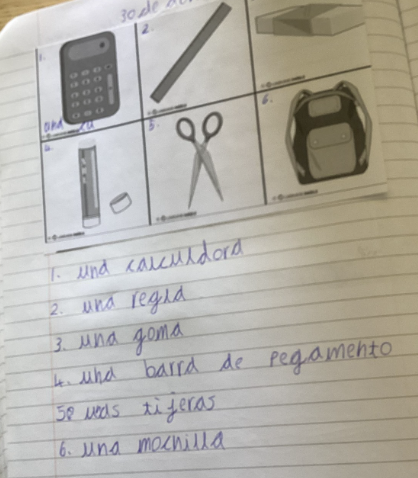 30 de
1.
2.
6.
4.
5.
1. una calculdora
2. una regla
3. una goma
4. una barra de pegamento
5. unas tijeras
6. una mochilla